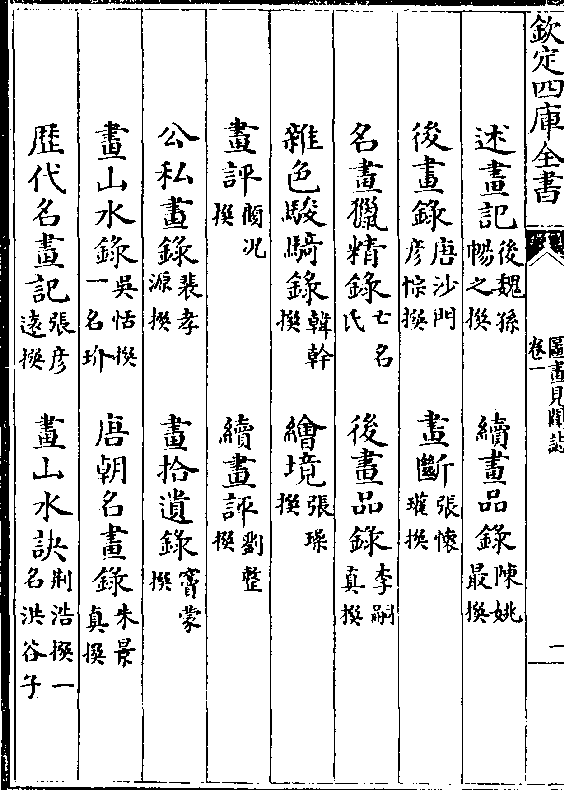 欽定四庫全書
圖畫見聞誌
卷一
二
述畫記 後魏孫暢之撰 續畫品錄 陳姚最撰
後畫錄 唐沙門彦悰撰 畫斷 張懷瓘撰
名畫獵精錄 亡名氏 後畫品錄 李嗣真撰
雜色駿騎錄 韓幹撰 繪境 張璪撰
畫評 顧况撰 續畫評 劉整撰
公私畫錄 裴孝源撰 畫拾遺錄 竇蒙撰
畫山水錄 吳恬撰一名玢 唐朝名畫錄 朱景真撰
歷代名畫記 張彦遠撰 畫山水訣 荆浩撰一名洪谷子